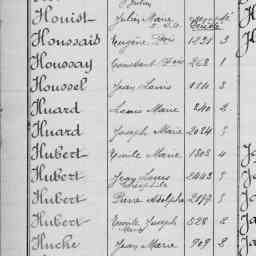 Julien
Houist Julien Marie
Houssais Eugène 1231 3
Houssay Constant 262 1
Houssel Jean Louis 1110 3
Huard Louis Marie 240 2
Huard Joseph Marie 2024 5
Hubert Emile Marie 1805 4
Hubert Jean Louis 2443 5
Théophile
Hubert Pierre Adolphe 2079 5
Hubert Emile Joseph 528 2
Marie
Huche Jean Marie 909 2